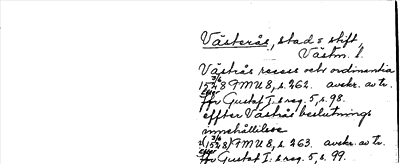 Västerås, stad o stift,
Västm. l.
Västerås recess och ordinantia
24/6
1528 FMU 8, s. 262. avskr. av tr.
efter
för Gustaf I:s reg. 5, s. 98.
efter Västerås beslutnings
innehållelse
24/6
(1528) FMU 8, s. 263. avskr. av tr.
efter
för Gustaf I:s reg. 5, s. 99.